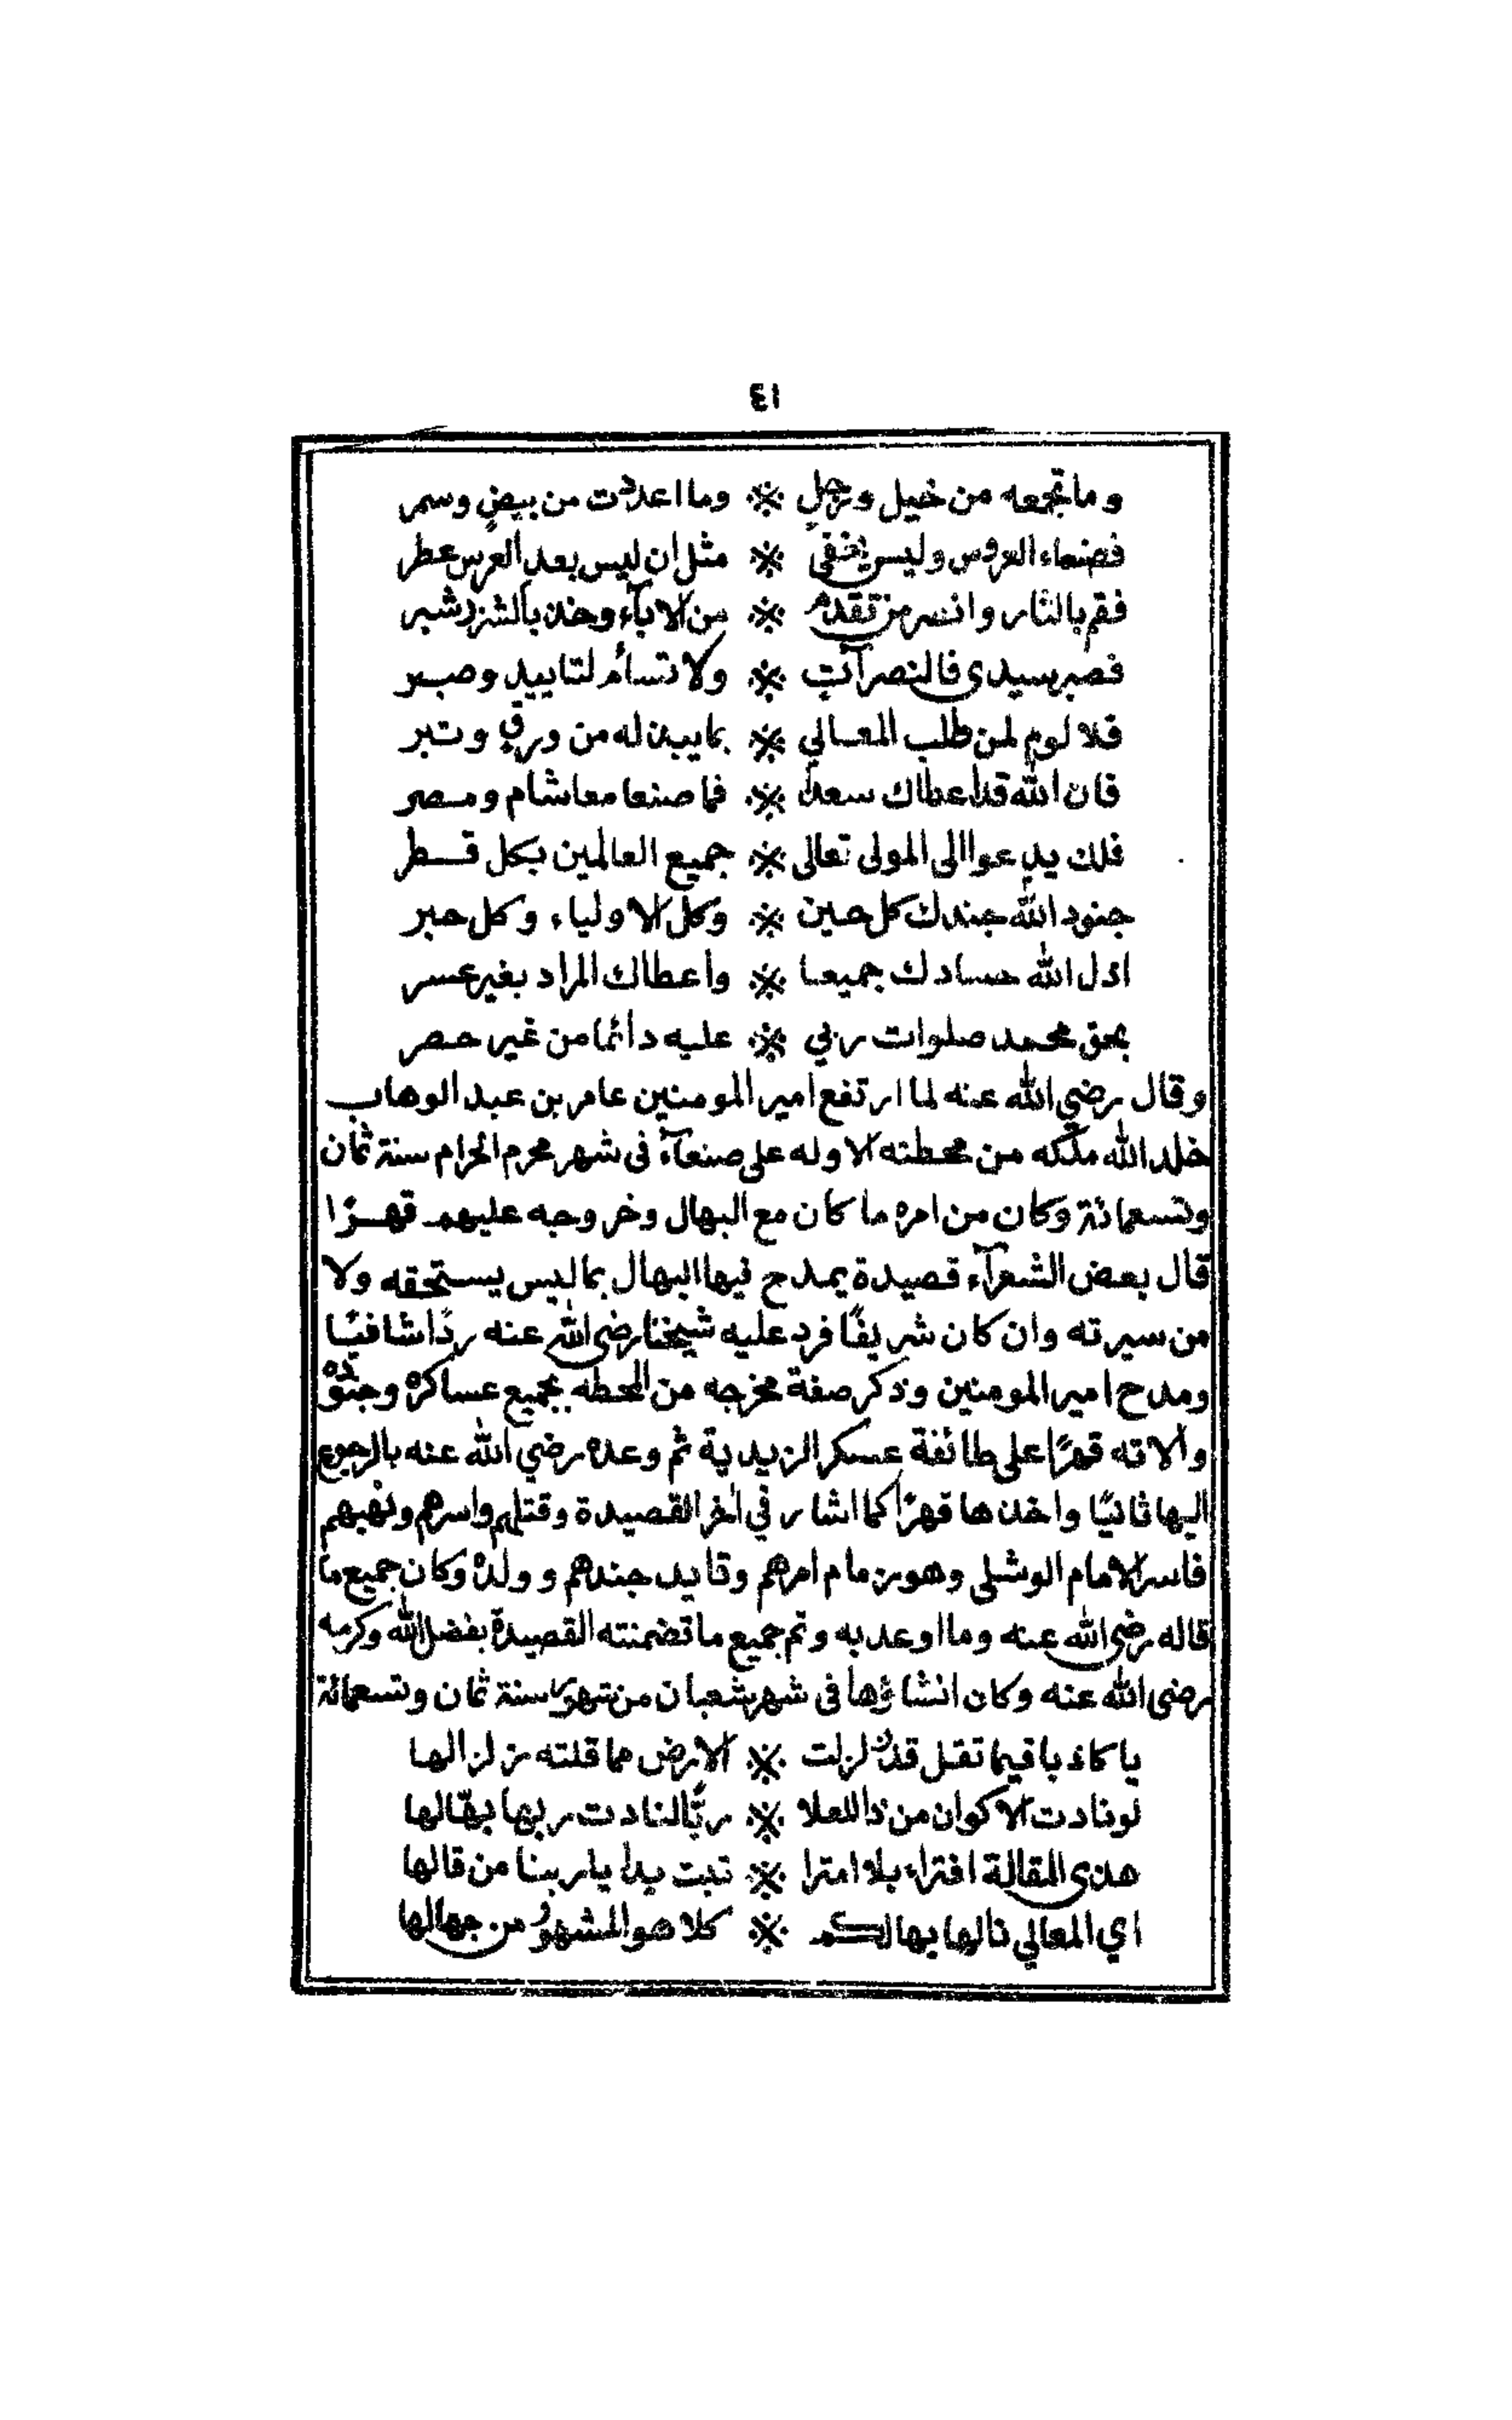 ٤١
وما تجمعه من خيل ورجل ※ وما اعددت من بيض وسمر
فصنعاء العروس وليس يخفى ※ مثل ان ليس بعد العرس عطر
فقم بالثار وانصر من تقدم ※ من الآباء وخذ بالشزر شبر
فصبر سيدى فالنصر آت ※ ولا تسأم لتاييد وصبر
فلا لوم لمن طلب المعالي ※ بما يبذله من ورق وتبر
فان الله قد اعطاك سعدا ※ فما صنعا معا شام ومصر
فلك يدعوا الى المولى تعالى ※ جميع العالمين بكل قطر
جنود الله جندك كل حين ※ وكل الاولياء وكل حبر
اذل الله حسادك جميعا ※ واعطاك المراد بغير عسر
بحق محمد صلوات ربي ※ عليه دائما من غير حصر
وقال رضي الله عنه لما ارتفع امير المومنين عامر بن عبد الوهاب
خلد الله ملكه من محطته الاوله على صنعآء فى شهر محرم الحرام سنة ثمان
وتسعمائة وكان من امره ما كان مع البهال وخروجه عليهم قهرًا
قال بعض الشعرآء قصيدة يمدح فيها البهال بما ليس يستحقه ولا
من سيرته وان كان شريفًا فرد عليه شيخنا رضى الله عنه ردًا شافيًا
ومدح امير المومنين وذكر صفة مخرجه من المحطه بجميع عساكره وجنوده
وآلاته قهرًا على طائفة عسكر الزيدية ثم وعده رضي الله عنه بالرجوع
اليها ثانيًا واخذها قهرًا كما اشار في آخر القصيدة وقتلهم واسرهم ونهبهم
فاسر الامام الوشلى وهو زمام امرهم وقايد جندهم وولده وكان جميع ما
قاله رضى الله عنه وما اوعد به وتم جميع ما تضمنته القصيدة بفضل الله وكرمه
رضى الله عنه وكان انشاؤها فى شهر شعبان من شهور سنة ثمان وتسعمائة
يا كاذبا فيما تقل قد زلزلت ※ الارض مما قلته زلزالها
لو نادت الاكوان من ذا للعلا ※ ربًّا لنادت ربها بهّالها
هذى المقالة افتراء بلا امترا ※ تبت يدا يا ربنا من قالها
اي المعالي نالها بهالكم ※ كلا هو المشهور من جهالها